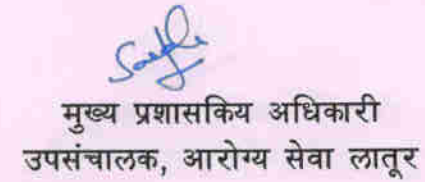 मुख्य प्रशासकिय अधिकारी
उपसंचालक, आरोग्य सेवा लातूर